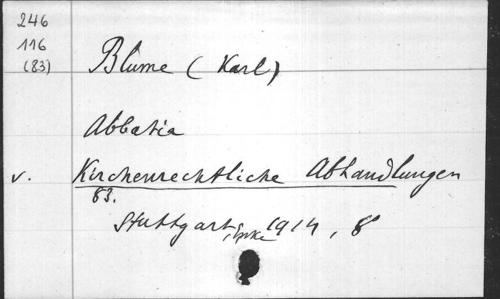 246
116
(83)
Blume (Karl)
Abbatia
v. Kirchenrechtliche Abhandlungen
83.
Stuttgart, Enke 1914, 8°